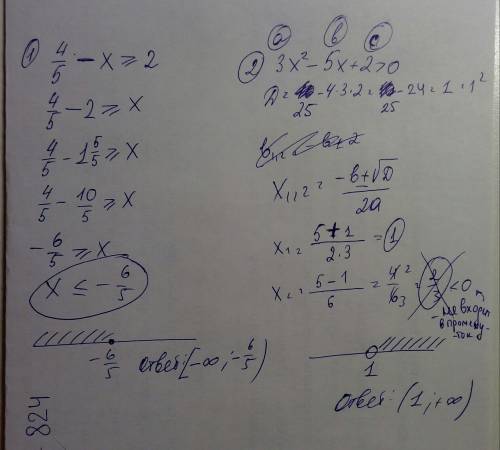 ① 4/5 - x ≥ 2
4/5 - 2 ≥ x
4/5 - 1 5/5 ≥ x
4/5 - 10/5 ≥ x
-6/5 ≥ x
x ≤ -6/5
-6/5
Ответ: [-∞; -6/5)
824
a b c
② 3x² - 5x + 2 > 0
D = 25 - 4·3·2 = 25 - 24 = 1 = 1²
x₁,₂ = (-b ± √D)/2a
x₁ = (5+1)/(2·3) = 1
x₂ = (5-1)/6 = 4²/6₃ = 2/3 < 0
не входит
в промежу-
ток
1
Ответ: (1; +∞)